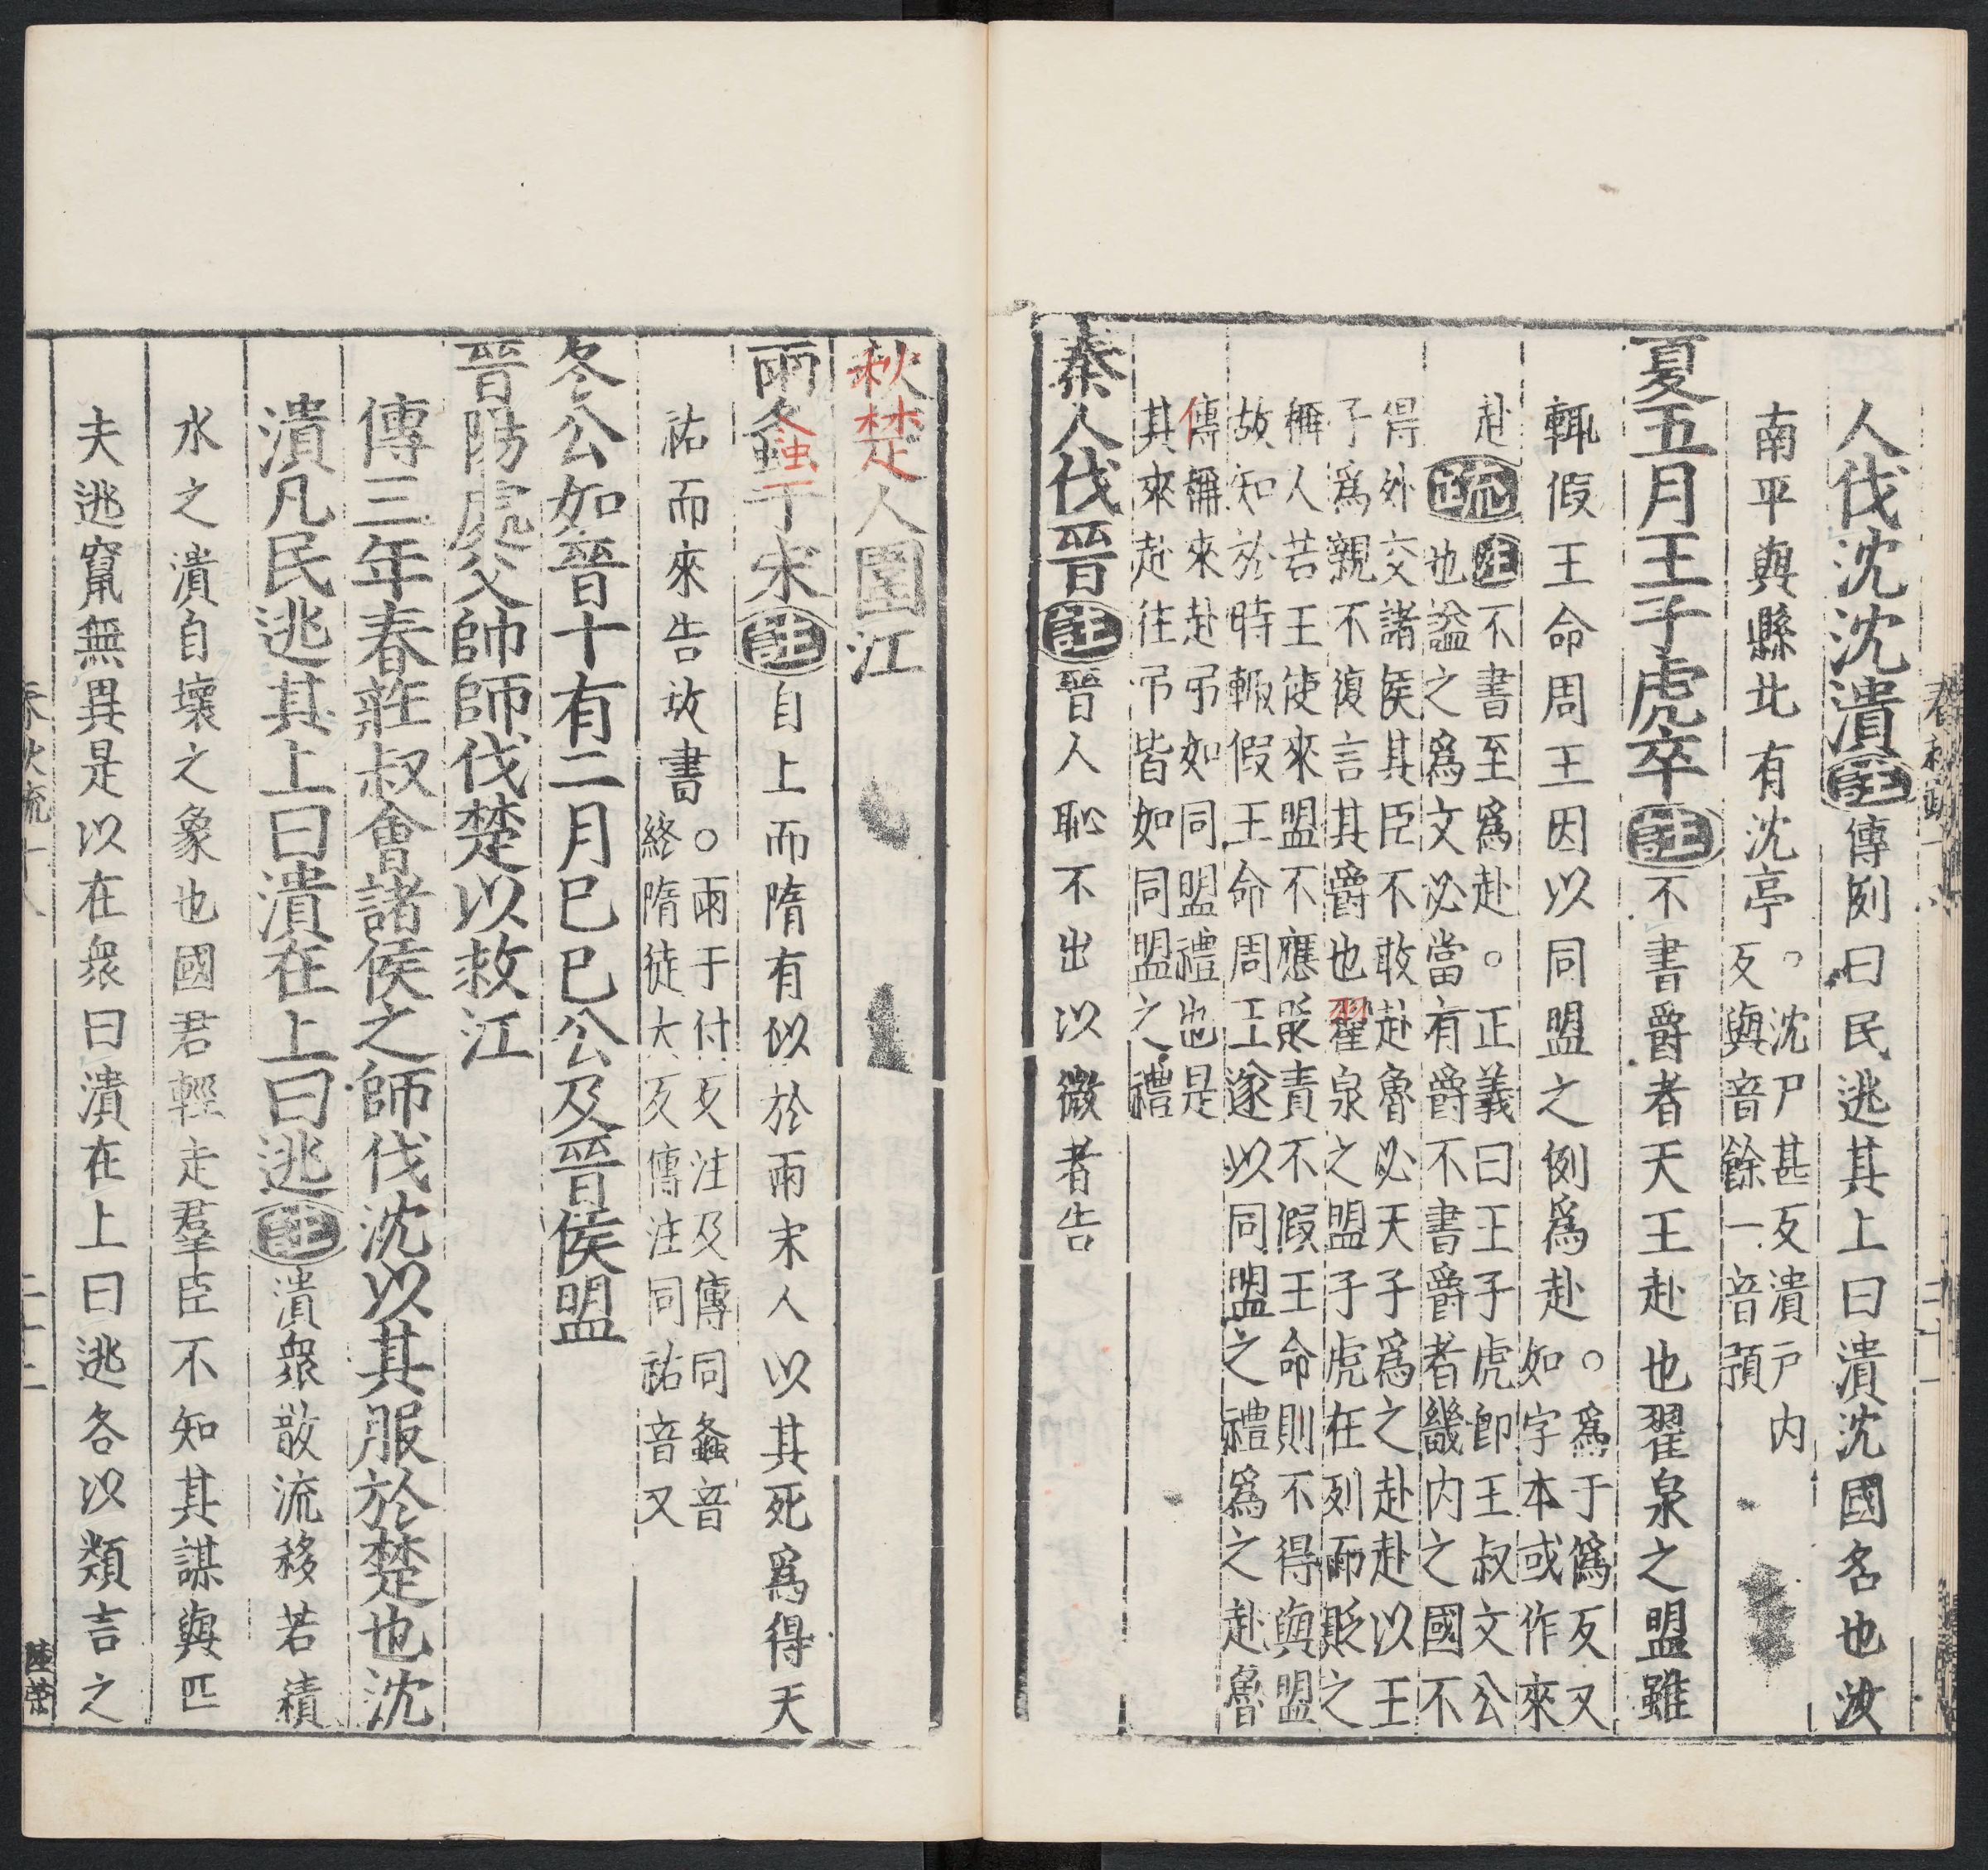 人伐沈沈潰註傳例曰民逃其上曰潰沈國名也汝
南平輿縣北有沈亭○沈尸甚反潰戶内
反輿音餘一音預
夏五月王子虎卒註不書爵者天王赴也翟泉之盟雖
輒假王命周王因以同盟之例爲赴○爲于僞反又
如字本或作來
赴疏註不書至爲赴○正義曰王子虎卽王叔文公
也謚之爲文必當有爵不書爵者畿内之國不
得外交諸侯其臣不敢赴魯必天子爲之赴赴以王
子爲親不復言其爵也翟泉之盟子虎在列而貶之
稱人若王使來盟不應貶責不假王命則不得與盟
故知於時輒假王命周王遂以同盟之禮爲之赴魯
傳稱來赴弔如同盟禮也是
其來赴往弔皆如同盟之禮
秦人伐晉註晉人恥不出以微者告
秋楚人圍江
雨螽于宋註自上而隋有似於雨宋人以其死爲得天
祐而來告故書○雨于付反注及傳同螽音
終隋徒大反傳注同祐音又
冬公如晉十有二月巳巳公及晉侯盟
晉陽處父帥師伐楚以救江
傳三年春莊叔會諸侯之師伐沈以其服於楚也沈
潰凡民逃其上曰潰在上曰逃註潰衆散流移若積
水之潰自壞之象也國君輕走羣臣不知其謀與匹
夫逃竄無異是以在衆曰潰在上曰逃各以類言之
春秋疏十八
二十二
陸榮